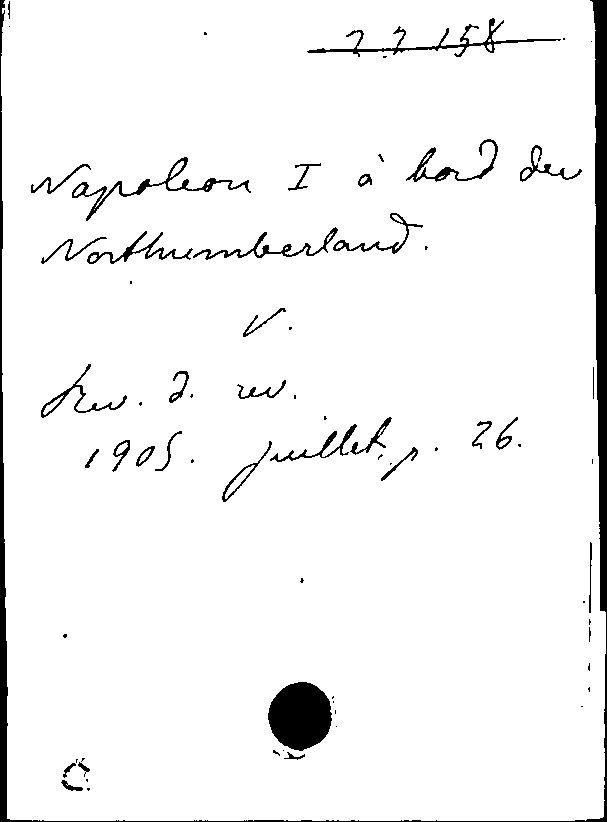 22158
Napoleon I à bord du
Northumberland.
V.
Rev. d. rev.
1905. juillet. p. 26.